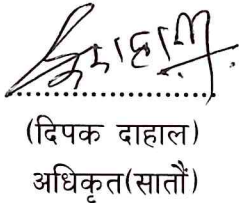 ..............................
(दिपक दाहाल)
अधिकृत(सातौं)